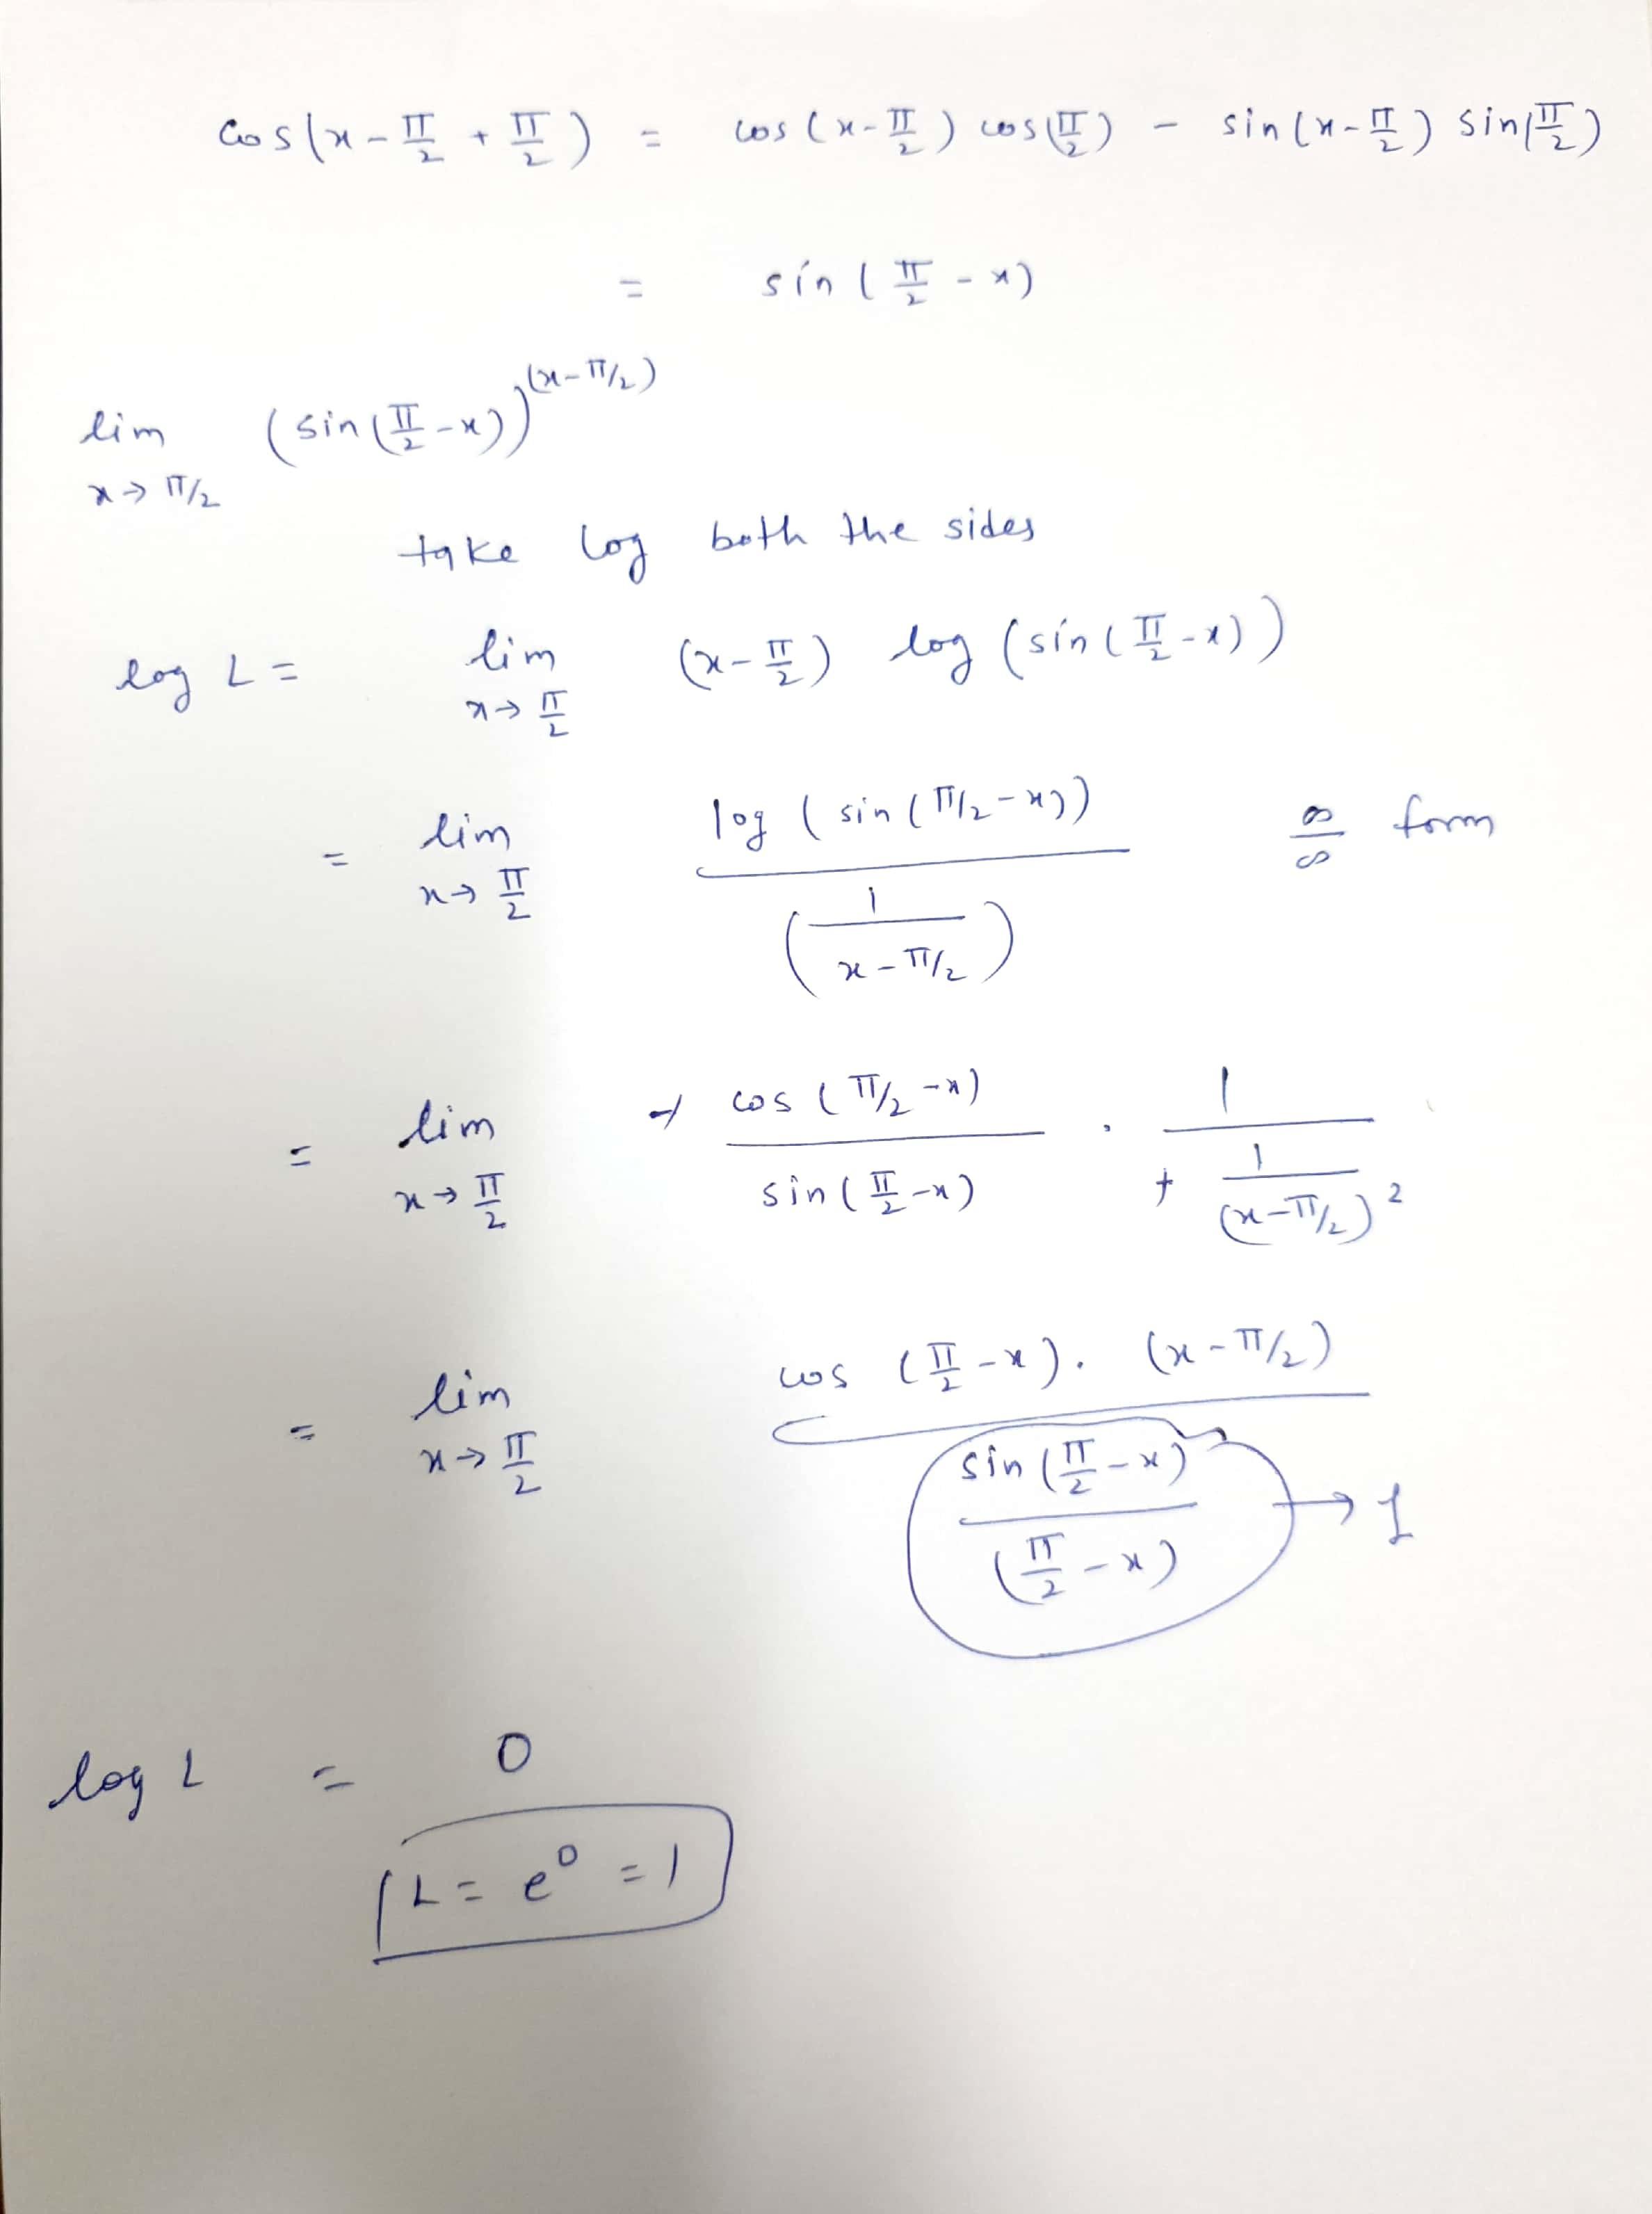 cos(x - π/2 + π/2) = cos(x - π/2) cos(π/2) - sin(x - π/2) sin(π/2)
= sin(π/2 - x)
lim x→π/2 (sin(π/2 - x))^(x - π/2)
take log both the sides
log L = lim x→π/2 (x - π/2) log (sin(π/2 - x))
= lim x→π/2 log (sin(π/2 - x)) / (1/(x - π/2)) ∞/∞ form
= lim x→π/2 cos(π/2 - x) / sin(π/2 - x) · 1 / + 1/(x - π/2)²
= lim x→π/2 cos(π/2 - x) · (x - π/2) / (sin(π/2 - x) / (π/2 - x)) → 1
log L = 0
L = e⁰ = 1